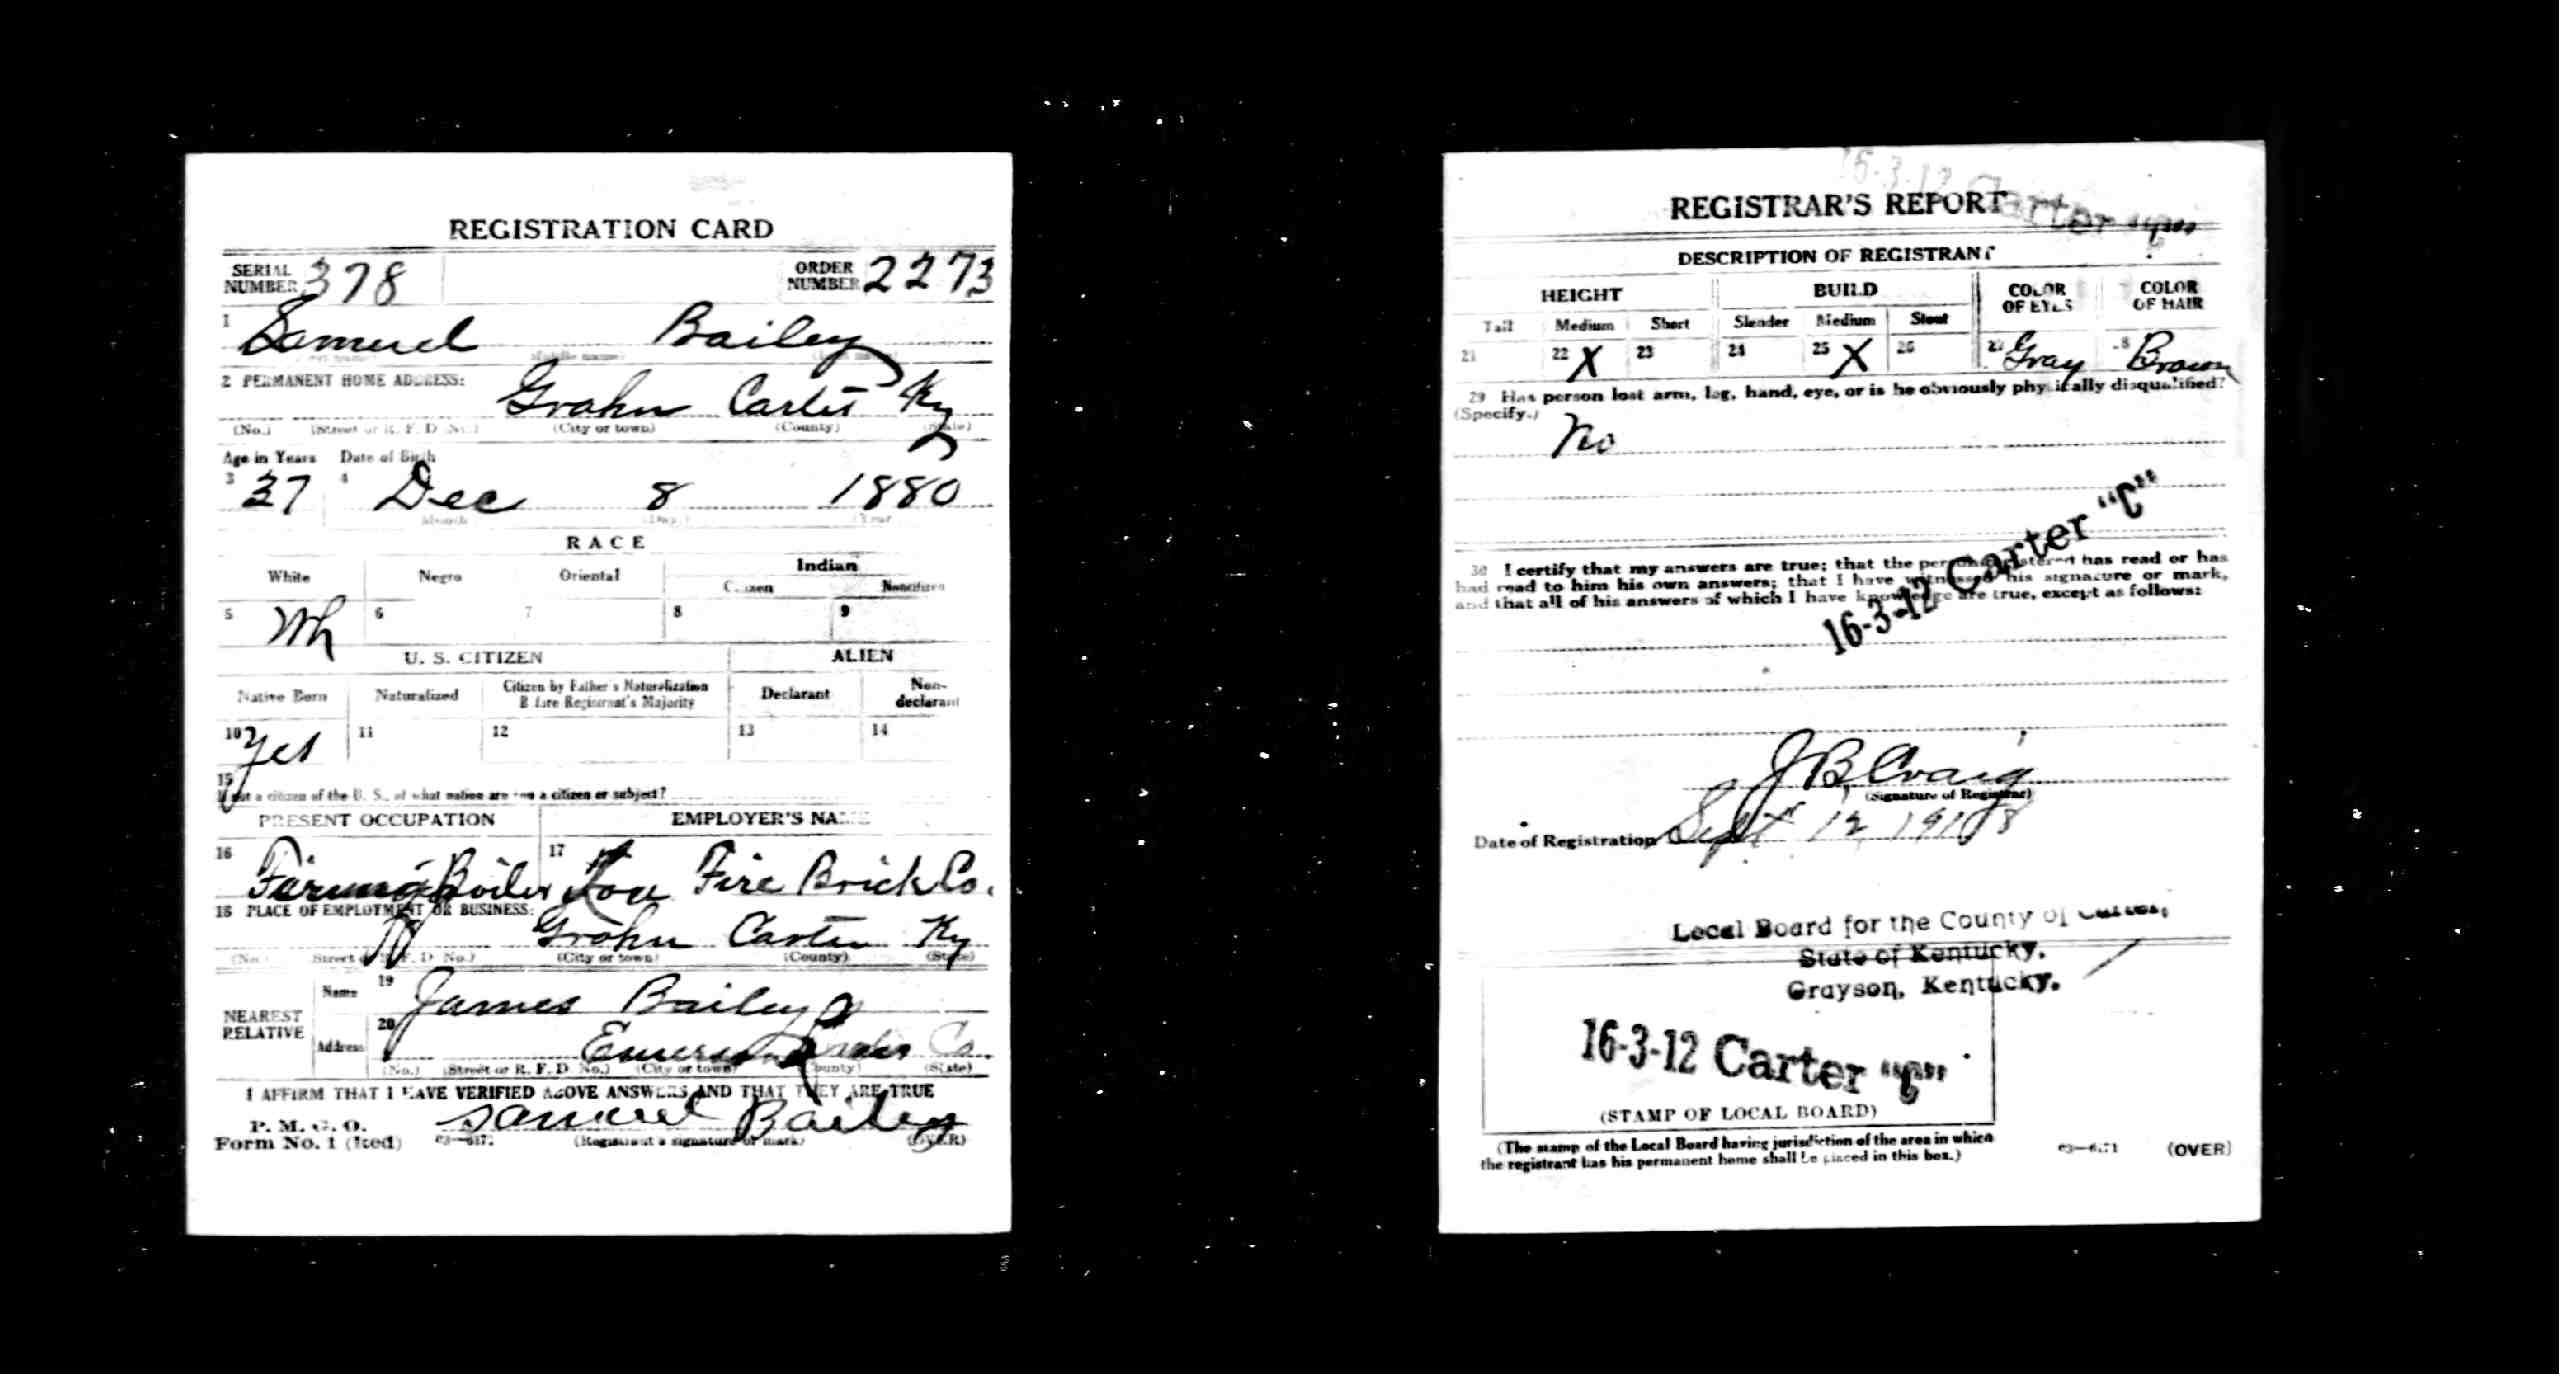 REGISTRATION CARD
SERIAL NUMBER 378
ORDER NUMBER 2273
1 Samuel Bailey
(Middle name)
2 PERMANENT HOME ADDRESS:
Grahn Carter Ky
(No.) (Street or R. F. D. No.) (City or town) (County) (State)
Age in Years Date of Birth
3 37 4 Dec 8 1880
Month (Day) Year
RACE
White Negro Oriental Indian
Citizen Noncitizen
5 Wh 6 7 8 9
U. S. CITIZEN ALIEN
Native Born Naturalized Citizen by Father's Naturalization Before Registrant's Majority Declarant Non-declarant
10 Yes 11 12 13 14
15
If not a citizen of the U. S., of what nation are you a citizen or subject?
PRESENT OCCUPATION EMPLOYER'S NAME
16 Boiler 17 Fire Brick Co.
18 PLACE OF EMPLOYMENT OR BUSINESS:
Grahn Carter Ky
(No.) Street or R. F. D. No.) (City or town) (County) (State)
NEAREST RELATIVE
Name 19 James Bailey
Address 20 Co.
(No.) (Street or R. F. D. No.) (City or town) (County) (State)
I AFFIRM THAT I HAVE VERIFIED ABOVE ANSWERS AND THAT THEY ARE TRUE
P. M. G. O.
Form No. 1 (Red)
Samuel Bailey
(Registrant's signature or mark) (OVER)
REGISTRAR'S REPORT
16-3-12 Carter
DESCRIPTION OF REGISTRANT
HEIGHT BUILD COLOR OF EYES COLOR OF HAIR
Tall Medium Short Slender Medium Stout
21 22 X 23 24 25 X 26 27 Gray 28 Brown
29 Has person lost arm, leg, hand, eye, or is he obviously physically disqualified?
(Specify.) No
30 I certify that my answers are true; that the person registered has read or has
had read to him his own answers; that I have witnessed his signature or mark,
and that all of his answers of which I have knowledge are true, except as follows:
16-3-12 Carter "C"
J B Craig
(Signature of Registrar)
Date of Registration Sept 12 1918
Local Board for the County of Carter,
State of Kentucky.
Grayson, Kentucky.
16-3-12 Carter "C"
(STAMP OF LOCAL BOARD)
(The stamp of the Local Board having jurisdiction of the area in which
the registrant has his permanent home shall be placed in this box.)
(OVER)